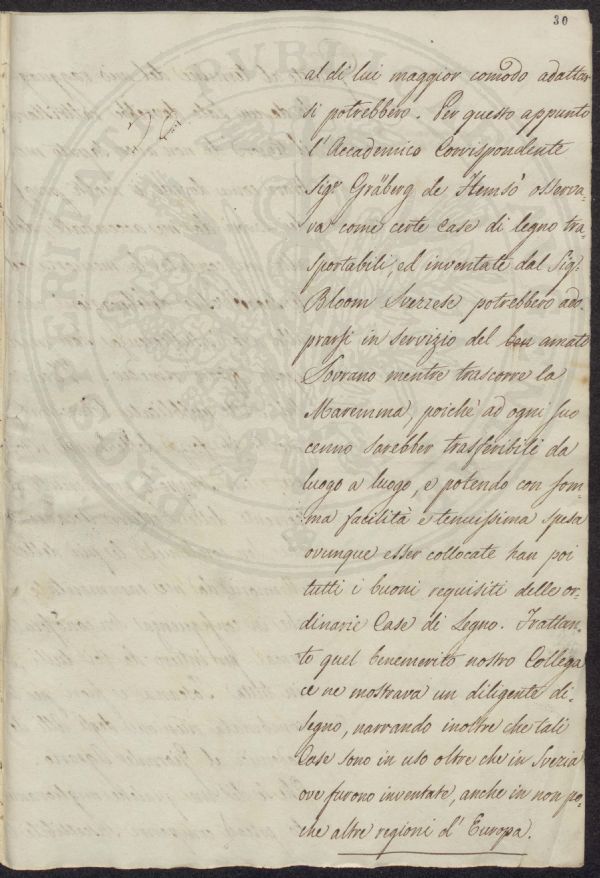 30
al di lui maggior comodo adattar
si potrebbero. Per questo appunto
l'Accademico Corrispondente
Sigr. Gräberg de Hemsò osserva-
va come certe Case di legno tra-
sportabili, ed inventate dal Sig.
Bloom Svezzese potrebbero ado-
prarsi in servizio del ben amato
Sovrano mentre trascorre la
Maremma, poichè ad ogni suo
cenno sarebber trasferibili da
luogo a luogo, e potendo con som-
ma facilità e tenuissima spesa
ovunque esser collocate han poi
tutti i buoni requisiti delle or-
dinarie Case di Legno. Frattan-
to quel benemerito nostro Collega
ce ne mostrava un diligente di-
segno, narrando inoltre che tali
Case sono in uso oltre che in Svezia
ove furono inventate, anche in non po-
che altre regioni d'Europa.